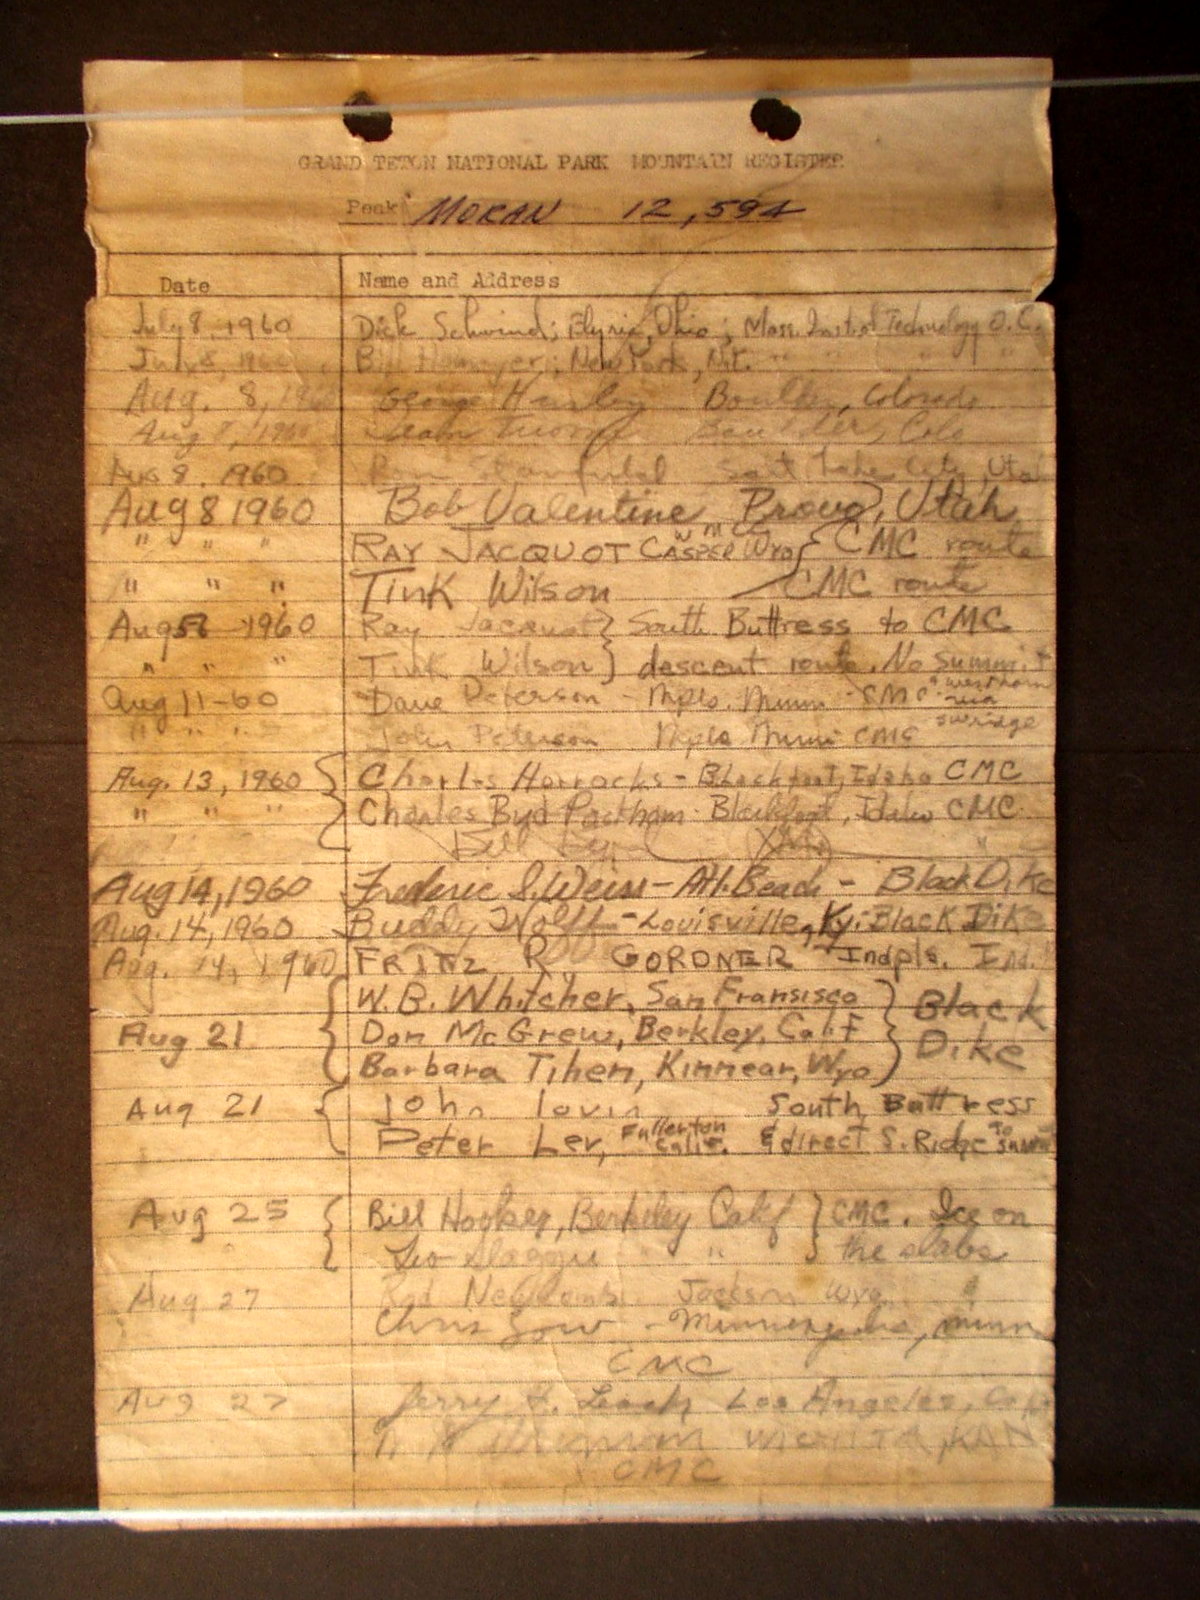 GRAND TETON NATIONAL PARK MOUNTAIN REGISTER
Peak: MORAN 12,594
Date Name and Address
July 8, 1960 Dick Schwind; Elyria, Ohio; Mass. Inst. of Technology O.C.
July 8, 1960 Bill ; New York, N.Y. " " " "
Aug. 8, 1960 George Hurley Boulder, Colorado
Aug 8, 1960 Boulder, Colo
Aug 8. 1960 Salt Lake City, Utah
Aug 8 1960 Bob Valentine Provo, Utah
" " " RAY JACQUOT CASPER Wyo } CMC route
" " " Tink Wilson CMC route
Aug 1960 Ray Jacquot } South Buttress to CMC
" " " Tink Wilson } descent route. No summit
Aug 11-60 Dave Peterson - Mpls. Minn - CMC via
" " " John Peterson Mpls Minn CMC SW ridge
Aug. 13, 1960 { Charles Horrocks - Blackfoot, Idaho CMC
" " " { Charles Byd Packham - Blackfoot, Idaho CMC
Bill
Aug 14, 1960 Frederic S. Weiss - Atl. Beach - Black Dike
Aug. 14, 1960 Buddy Wolff - Louisville, Ky. Black Dike
Aug. 14, 1960 FRITZ R GORDNER Indpls. Ind.
{ W.B. Whitcher, San Fransisco } Black
Aug 21 { Don McGrew, Berkley, Calif } Dike
{ Barbara Tihen, Kinnear, Wyo }
Aug 21 { John South Buttress
Peter Lev, Fullerton Calif. & direct S. Ridge to summit
Aug 25 { Bill Hooker, Berkeley Calif } CMC. Ice on
" { Leo " } the slabs
Aug 27 Rod Newcomb Jackson Wyo
Chris - Minneapolis, Minn
CMC
Aug 27 Jerry Leach Los Angeles,
WICHITA, KAN
CMC